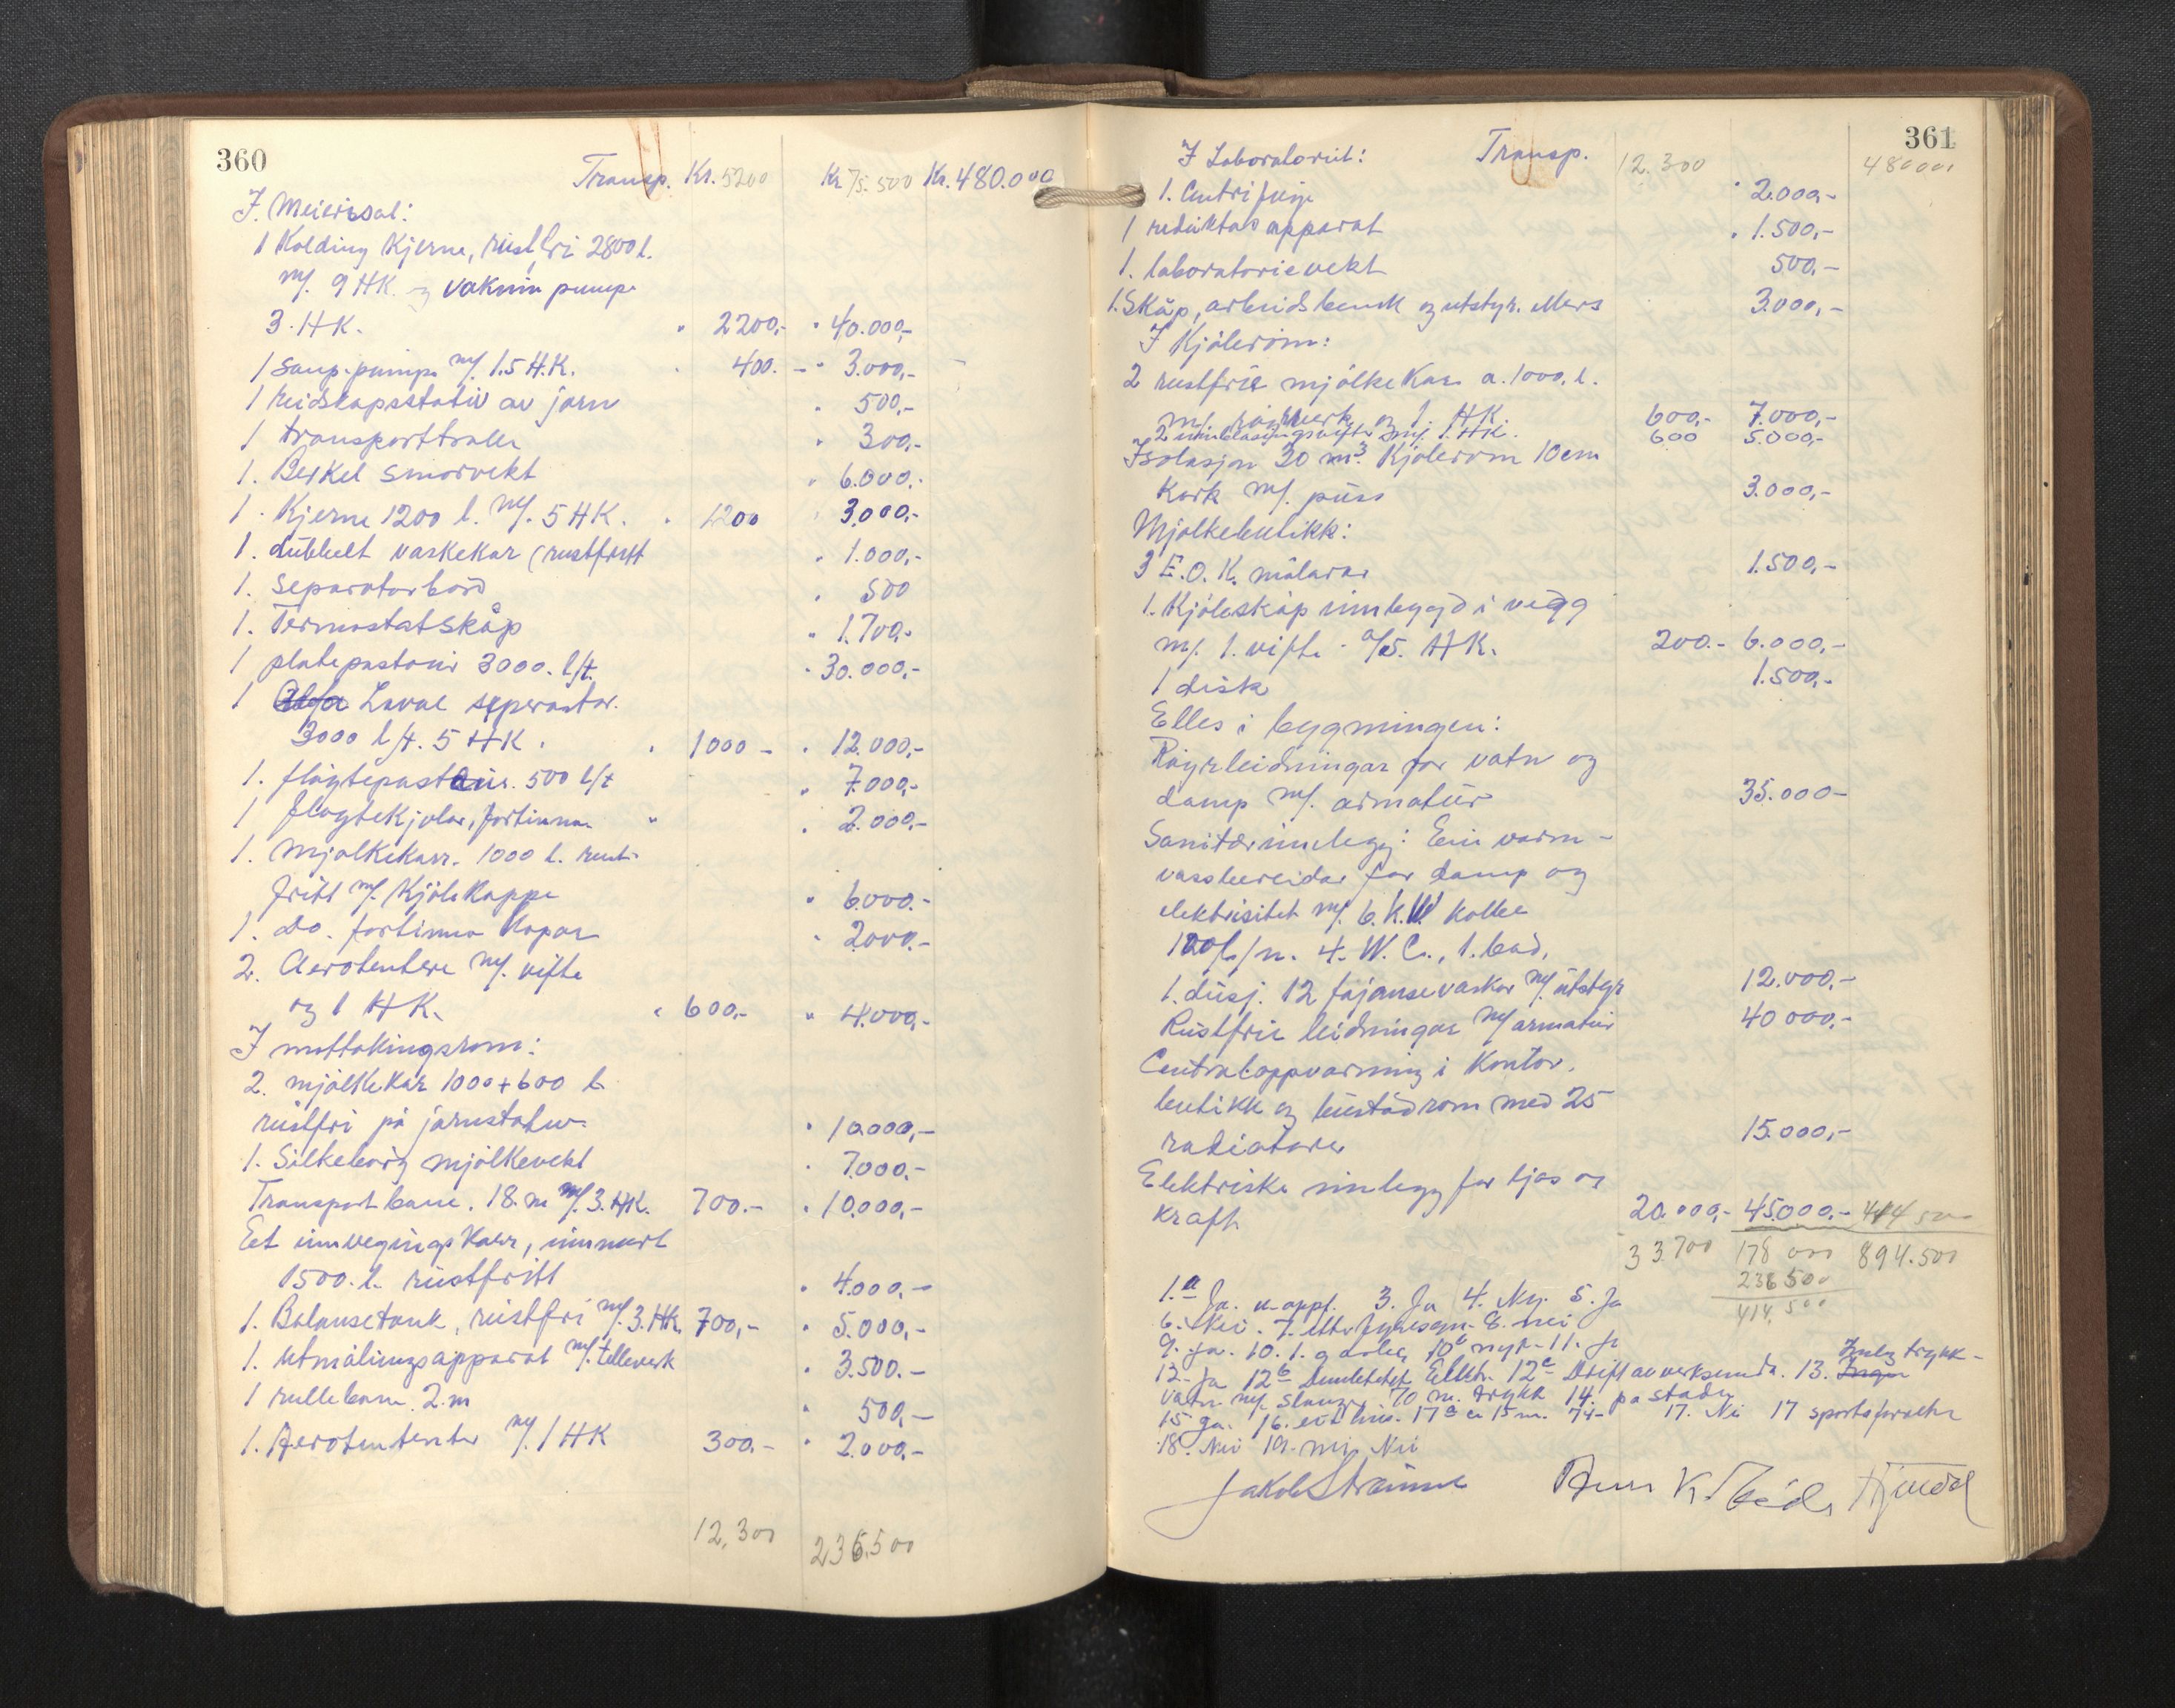 360
Transp. Kr. 5200 Kr 75.500 Kr. 480.000
I Meierisal:
1 Kolding Kjerne, rustfri 2800 l.
m/. 9 HK. og vakuum pumpe
3. HK. " 2200,- " 40.000,-
1 saup. pumpe m/. 1.5 H.K. " 400.- " 3.000,-
1 reidskapsstativ av jarn " 500,-
1 transporttralle " 300,-
1. Berkel smørvekt " 6.000.-
1. Kjerne 1200 l. m/. 5 HK. " 1200 " 3.000,-
1. dubbelt vaskekar (rustfritt " 1.000,-
1. Separatorbord " 500
1. Termostatskåp " 1.700,-
1 platepastør 3000. l/t. " 30.000,-
1 Alfa Laval seperator.
3000 l/t. 5 HK. " 1000 - " 12.000,-
1. fløytepastør. 500 l/t " 7.000,-
1 fløytekjølar, fortinna. " " 2.000,-
1. Mjølkekarr. 1000 l. rust-
fritt m/. Kjølekappe " 6.000.-
1. do. fortinna kopar " 2000.-
2. Aerotemtere m/. vifte
og 1 HK. " 600,- " 4.000,-
I mottakingsrom:
2. mjølkekar 1000 + 600 l.
rustfri på jarnstativ. " 10.000,-
1. Silkeborg mjølkevekt " 7.000.-
Transportbane. 18. m m/. 3. HK. 700.- " 10.000,-
Eet innvegingskarr, innmurt
1500. l. rustfritt " 4.000,-
1. Balansetank, rustfri m/. 3. HK. 700,- " 5.000,-
1. utmålingsapparat m/. telleverk " 3.500.-
1 rullebane. 2. m " 500,-
1. Aerotemter m/. 1 HK 300.- " 2.000,-
12,300 236.500
361
I Laboratoriet: Transp. 12.300 480000
1. Centrifuge " 2.000,-
1 reduktas apparat " 1.500,-
1. laboratorievekt 500,-
1. Skåp, arbeidsbenk og utstyr. ellers 3.000,-
I Kjølerom:
2 rustfrie mjølkekar a. 1000. l.
m/. rørverk og 1. HK. 600,- 7.000,-
2 innblåsingsvifter m/. 1. HK. 600 5.000,-
Isolasjon 30 m³. Kjølerom 10 cm
Kork m/. puss 3.000,-
Mjølkebutikk:
3 E.O.K. målarar 1.500,-
1. Kjøleskåp innbygd i vegg
m/. 1. vifte 200.- 6.000,-
1 disk 1.500,-
Elles i bygningen:
Røyrleidningar for vatn og
damp m/. armatur 35.000-
Sanitærinnlegg: Ein varm-
vassbereidar for damp og
elektrisitet m/. 6. K.W kolbe
4. W.C., 1. bad,
1. dusj. 12 fajansevaskar m/. utstyr 12.000,-
Rustfrie leidningar m/ armatur 40 000,-
Centraloppvarming i Kontor.
butikk og bustadrom med 25
radiatorer 15.000,-
Elektriske innlegg for ljos og
kraft 20.000,- 45.000,- 414 500
33700 178 000 894.500
236 500
414,500
1.a Ja. 3. Ja 4. Nei. 5. Ja
6. Nei. 7. 8. nei
9. ja. 10. 1. 10b 11. Ja
12. Ja 12b Elektr. 12c Drift av verksemda. 13. Ingen Innlg trykk-
vatn m/ slange 70 m. trykk 14. på staden
15 Ja. 16. eit hus. 17a ca 15 m. 17. Nei 17
18. Nei 19. Nei
Jakob